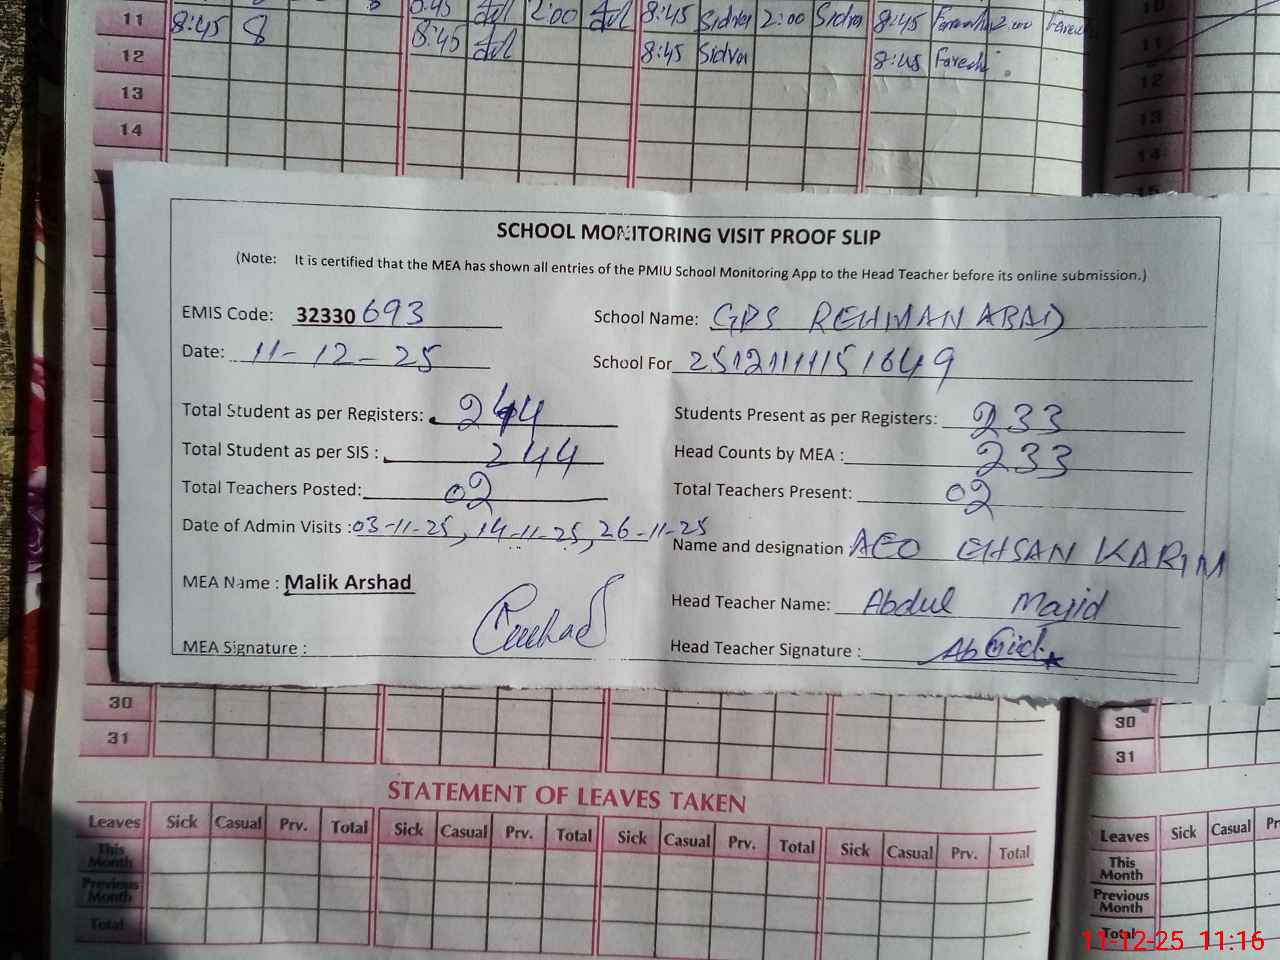 11 8:45 8 8:45 2:00 8:45 Sidra 2:00 Sidra 8:45 2:00
12 8:45 8:45 Sidra 8:45
13
14
10
11
12
13
14
15
SCHOOL MONITORING VISIT PROOF SLIP
(Note: It is certified that the MEA has shown all entries of the PMIU School Monitoring App to the Head Teacher before its online submission.)
EMIS Code: 32330 693 School Name: GPS REHMAN ABAD
Date: 11-12-25 School For 2512111151649
Total Student as per Registers: 244 Students Present as per Registers: 233
Total Student as per SIS : 244 Head Counts by MEA : 233
Total Teachers Posted: 02 Total Teachers Present: 02
Date of Admin Visits : 03-11-25, 14-11-25, 26-11-25 Name and designation AEO EHSAN KARIM
MEA Name : Malik Arshad Head Teacher Name: Abdul Majid
MEA Signature : Head Teacher Signature :
30
31
30
31
STATEMENT OF LEAVES TAKEN
Leaves Sick Casual Prv. Total Sick Casual Prv. Total Sick Casual Prv. Total Sick Casual Prv. Total
This Month
Previous Month
Total
Leaves Sick Casual Pr
This Month
Previous Month
Total
11-12-25 11:16